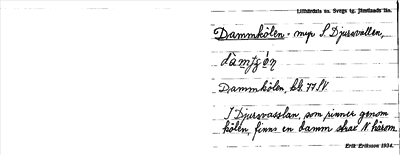 Lillhärdals sn. Svegs tg. Jämtlands län.
Dammkölen - myr S Djursvallen,
Dammkölen, bl. 77 SV.
I Djursvasslan, som rinner genom
kölen, finns en damm strax N härom.
Erik Eriksson 1934.